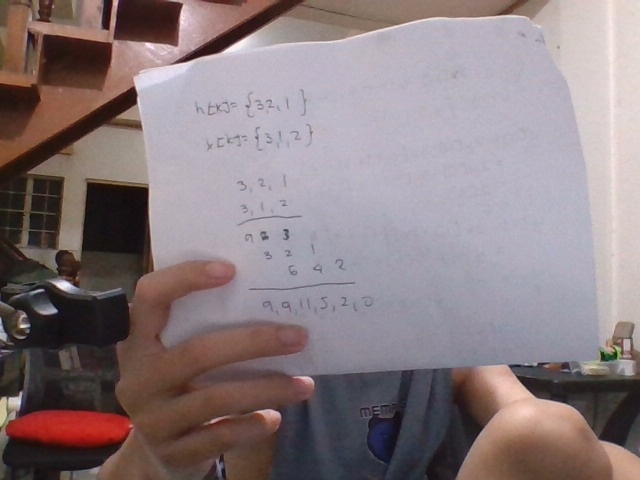 h[k]= {3,2,1}
x[k]= {3,1,2}
3, 2, 1
3, 1, 2
9 6 3
3 2 1
6 4 2
9, 9, 11, 5, 2, 0